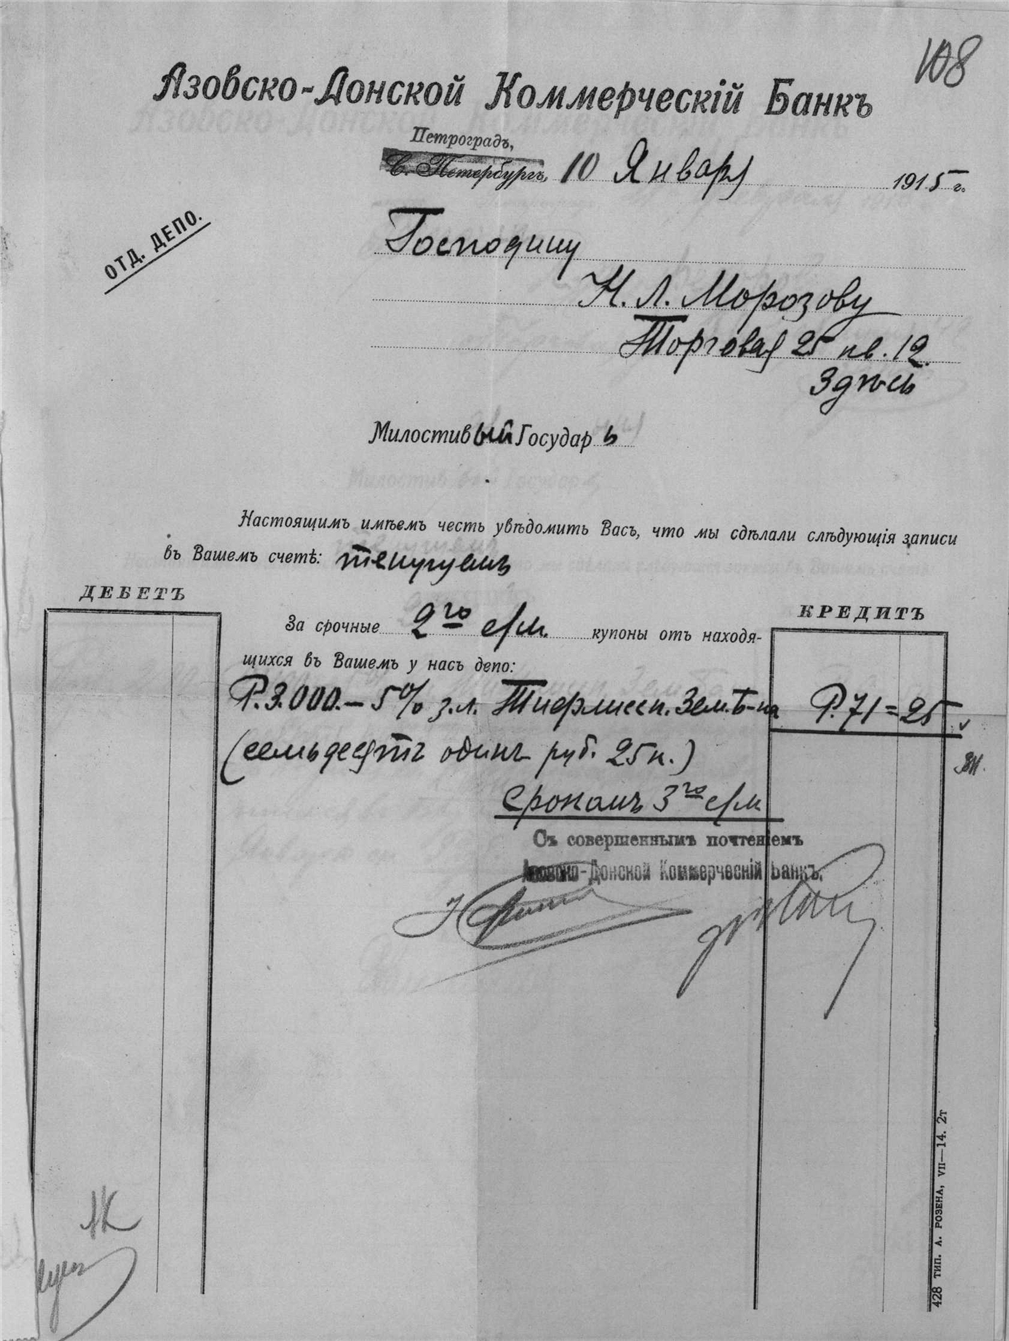 108
Азовско-Донской Коммерческій Банкъ
Петроградъ,
С. Петербургъ, 10 Января 1915 г.
ОТД. ДЕПО.
Господину
Н. Л. Морозову
Торговая 25 кв. 12.
Здѣсь
Милостивый Государь
Настоящимъ имѣемъ честь увѣдомить Васъ, что мы сдѣлали слѣдующія записи
въ Вашемъ счетѣ: текущемъ
ДЕБЕТЪ
КРЕДИТЪ
За срочные 2го с/м. купоны отъ находя-
щихся въ Вашемъ у насъ депо:
Р. 3.000.– 5% з.л. Тифлисск. Зем. Б-ка Р. 71=25
(семьдесятъ одинъ руб. 25 к.)
срокомъ 3го с/м
Съ совершеннымъ почтеніемъ
Азовско-Донской Коммерческій Банкъ.
АК
428 ТИП. А. РОЗЕНА, VII—14. 2т